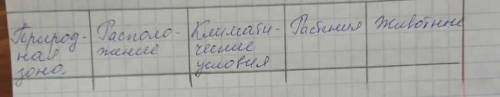 Природ-
ная
зона.
Располо-
жение
Климати-
ческие
условия
Растения
Животные